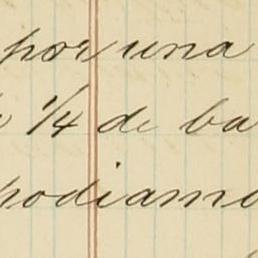 por una
1/4 de ba
podiamo